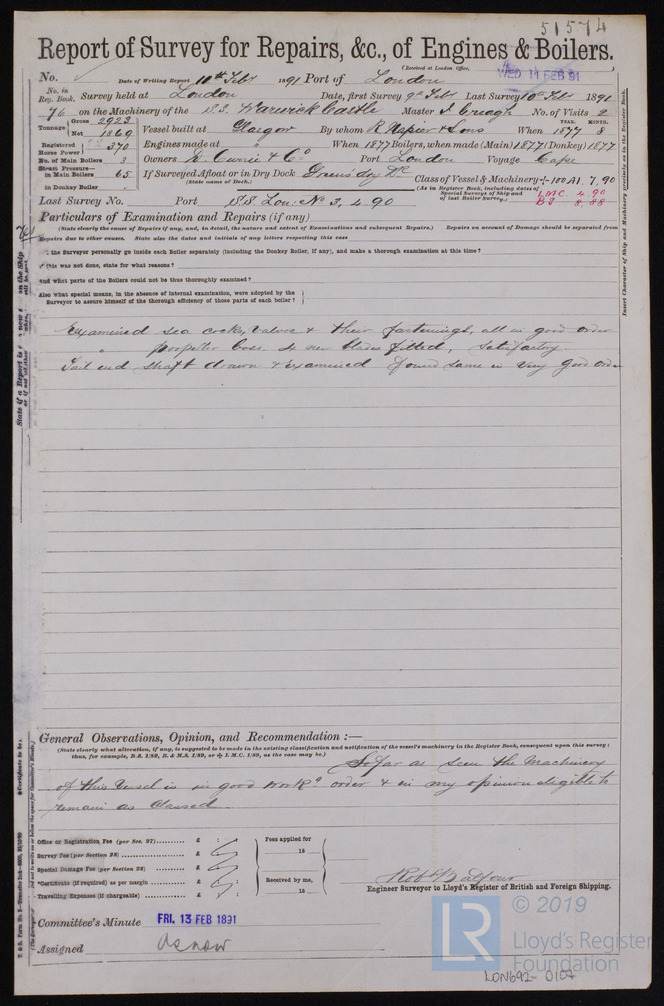 51574
Report of Survey for Repairs, &c., of Engines & Boilers.
(Received at London Office,
WED 11 FEB 91
No. Date of Writing Report 10th Febr 1891 Port of London
No. in Reg. Book. Survey held at London Date, first Survey 9th Febr Last Survey 10th Febr 1891
76 on the Machinery of the S.S. Warwick Castle Master J Creagh No. of Visits 2
Tonnage Gross 2923 Net 1869
Vessel built at Glasgow By whom R Napier & Sons When 1877 YEAR. 8 MONTH.
Registered Horse Power 370 Engines made at " When 1877 Boilers, when made (Main) 1877 (Donkey) 1877
No. of Main Boilers 3 Owners D. Currie & Co. Port London Voyage Cape
Steam Pressure— in Main Boilers 65 If Surveyed Afloat or in Dry Dock Greens dry Dk Class of Vessel & Machinery +100A1. 7,90
(State name of Dock.) (As in Register Book, including dates of Special Surveys of Ship and of last Boiler Survey.) LMC. 4 90
in Donkey Boiler BS 8,88
Last Survey No. Port SS Lon: No 3, 4.90
Particulars of Examination and Repairs (if any)
(State clearly the cause of Repairs if any, and, in detail, the nature and extent of Examinations and subsequent Repairs.) Repairs on account of Damage should be separated from
Repairs due to other causes. State also the dates and initials of any letters respecting this case
the Surveyor personally go inside each Boiler separately (including the Donkey Boiler, if any), and make a thorough examination at this time?
this was not done, state for what reasons?
And what parts of the Boilers could not be thus thoroughly examined?
Also what special means, in the absence of internal examination, were adopted by the
Surveyor to assure himself of the thorough efficiency of those parts of each boiler?
Examined sea cocks, valves & their fastenings, all in good order
" propeller boss 4 new blades fitted, satisfactory.
Tail end shaft drawn & examined found same in very good order
General Observations, Opinion, and Recommendation:—
(State clearly what alteration, if any, is suggested to be made in the existing classification and notification of the vessel's machinery in the Register Book, consequent upon this survey;
So far as seen the Machinery
of this Vessel is in good workg order & in my opinion eligible to
remain as Classed
Office or Registration Fee (per Sec. 27) £
Survey Fee (per Section 28) £
Special Damage Fee (per Section 28) £
Certificate (if required) as per margin £
Travelling Expenses (if chargeable) £
Fees applied for 18
Received by me, 18
Robt Balfour
Engineer Surveyor to Lloyd's Register of British and Foreign Shipping.
Committee's Minute FRI. 13 FEB 1891
Assigned as now
LR
© 2019
Lloyd's Register
Foundation
LON692-0107
Insert Character of Ship and Machinery precisely as in the Register Book.